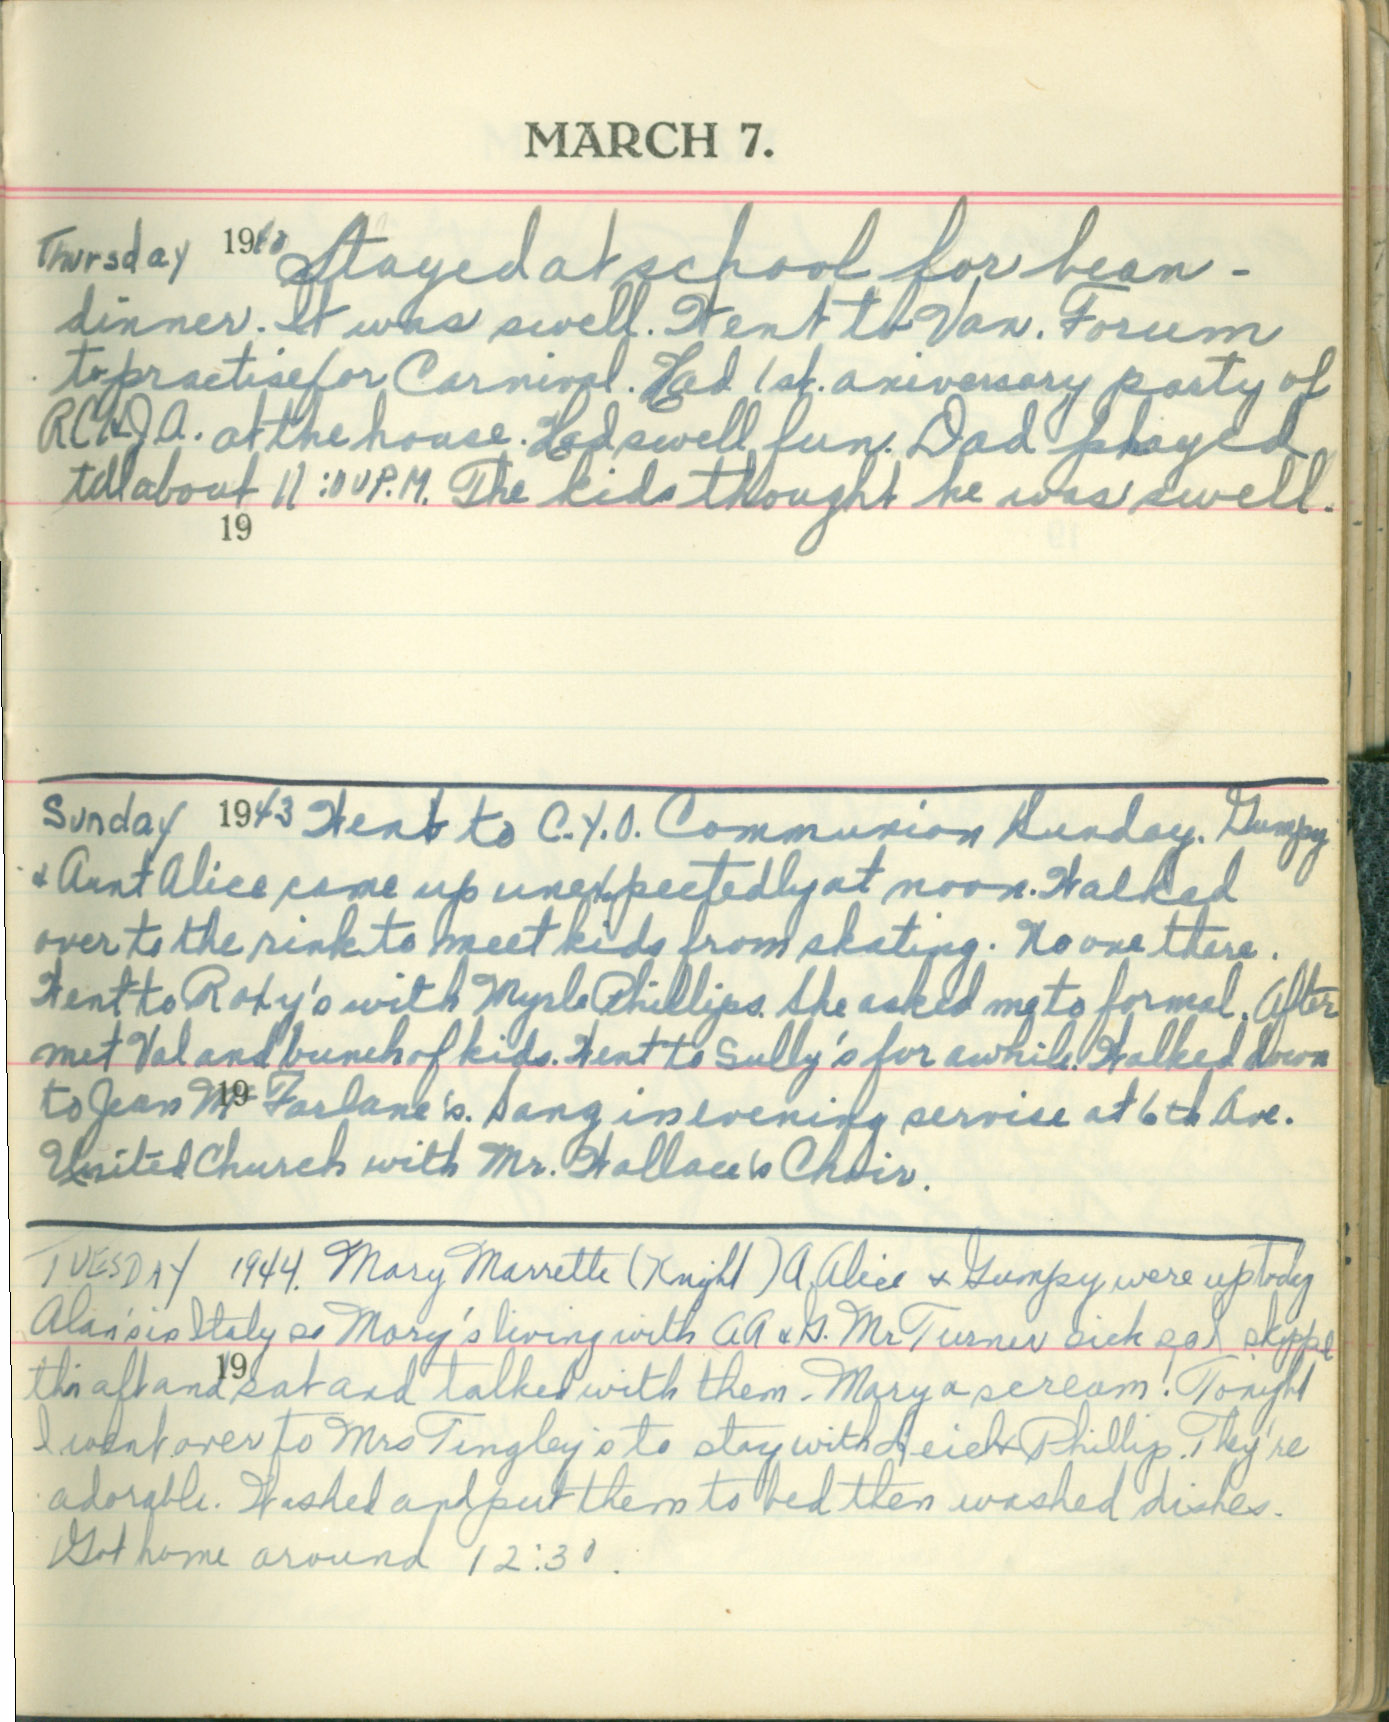 MARCH 7.
Thursday 1940 Stayed at school for bean-
dinner. It was swell. Went to Van. Forum
to practise for Carnival. Had 1st. aniversary party of
at the house. Had swell fun. Dad played
till about 11:00 P.M. The kids thought he was swell.
19
Sunday 1943 Went to C.Y.O. Communion Sunday. Gumpy
& Aunt Alice came up unexpectedly at noon. Walked
over to the rink to meet kids from skating. No one there.
Went to Roxy's with Myrle Phillips. She asked me to formal. After
met Val and bunch of kids. Went to Sully's for awhile. Walked down
19
to Jean Mc Farlane's. Sang in evening servise at 6th Ave.
United Church with Mr. Wallace's Choir.
TUESDAY 1944. Mary Marrette (Knight) A. Alice & Gumpy were up today
Alan's in Italy so Mary's living with AA & G. Mr Turner sick so I
19
this aft and sat and talked with them. Mary a scream! Tonight
I went over to Mrs Tingley's to stay with & Phillip. They're
adorable. Washed and put them to bed then washed dishes.
Got home around 12:30.